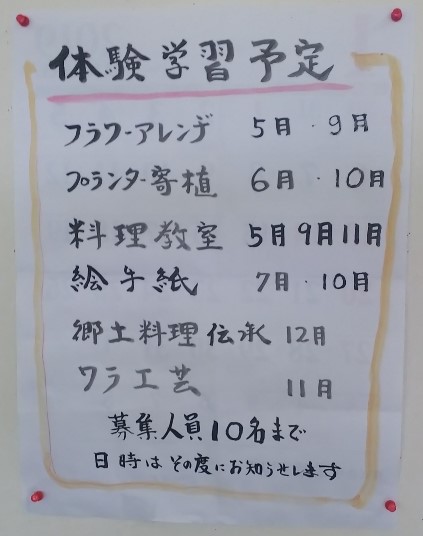 体験学習予定
フラワーアレンヂ 5月・9月
プランター寄植 6月・10月
料理教室 5月9月11月
絵手紙 7月・10月
郷土料理伝承 12月
ワラ工芸 11月
募集人員10名まで
日時はその度にお知らせします